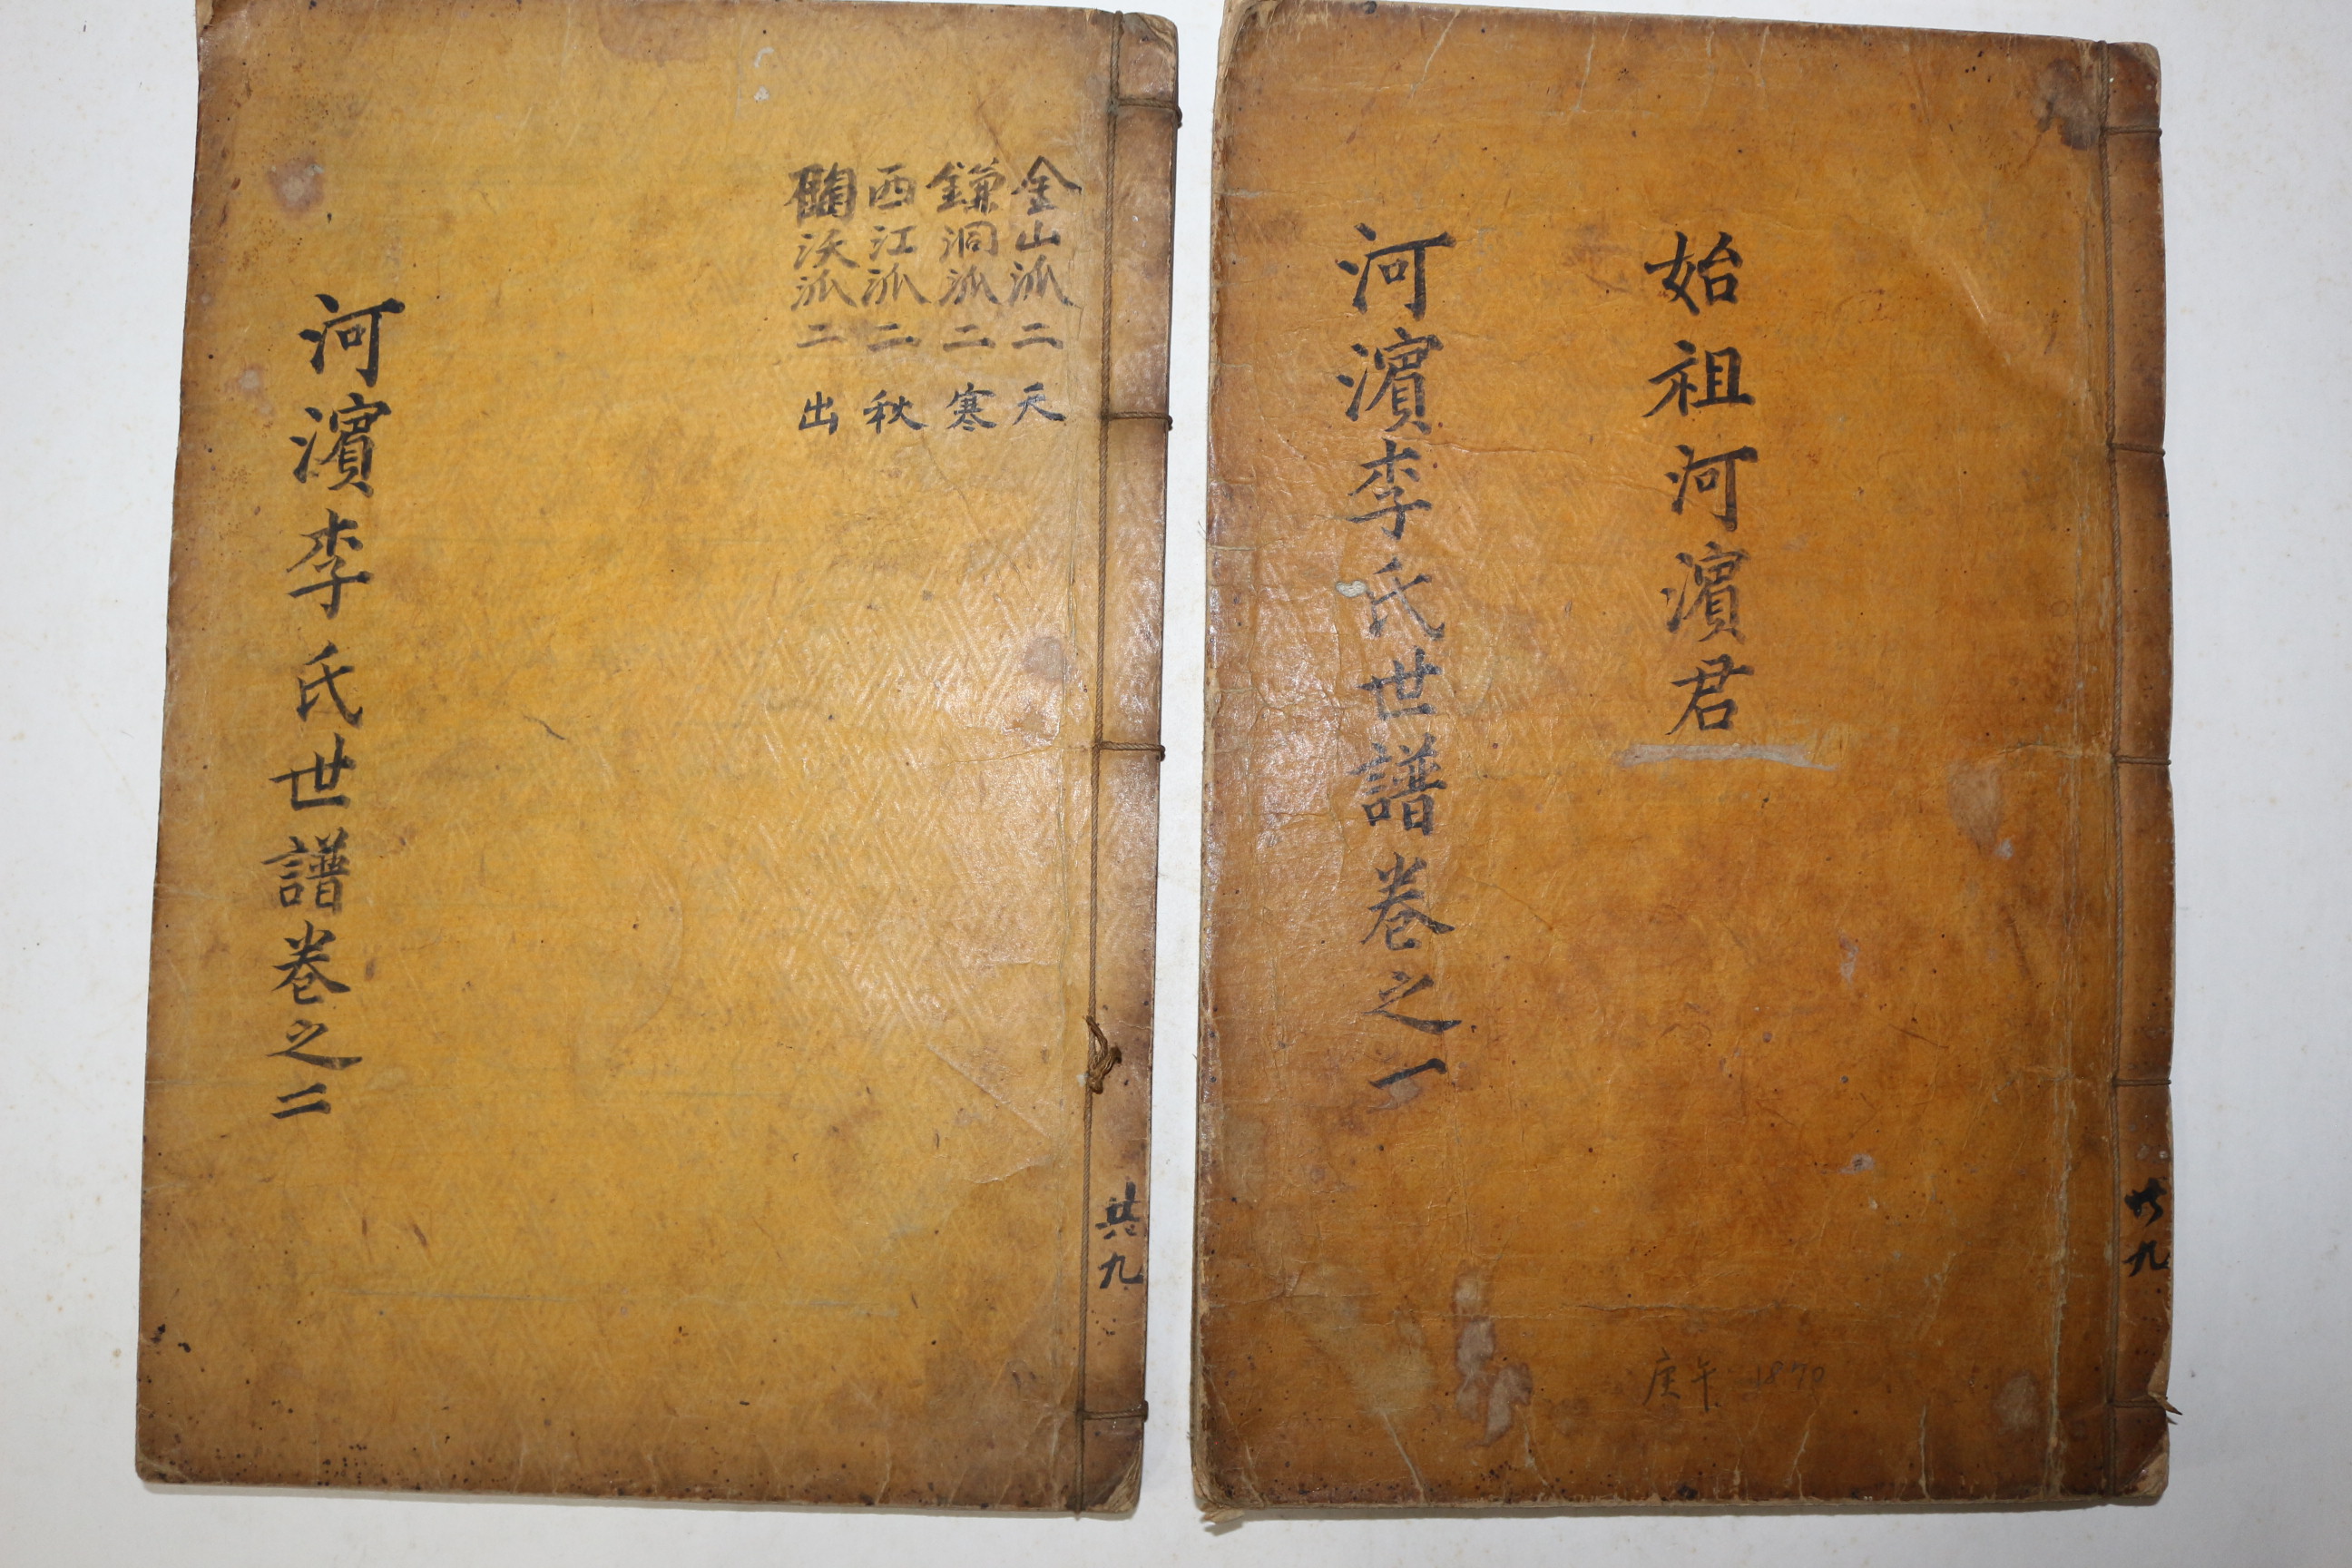 始祖河濱君
河濱李氏世譜卷之一
共九
庚午 1870
金山派二 天
鎌洞派二 寒
西江派二 秋
沃派二 出
河濱李氏世譜卷之二
共九